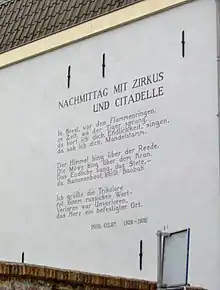 NACHMITTAG MIT ZIRKUS
UND CITADELLE
In Brest, vor den Flammenringen,
im Zelt, wo der Tiger sprang,
da hört ich dich, Endlichkeit, singen,
da sah ich dich, Mandelstamm.
Der Himmel hing über der Reede,
die Möwe hing über dem Kran.
Das Endliche sang, das Stete, -
du, Kanonenboot, heißt "Baobab".
Ich grüßte die Trikolore
mit einem russischen Wort -
Verloren war Unverloren,
das Herz ein befestigter Ort.
PAUL CELAN (1920-1970)